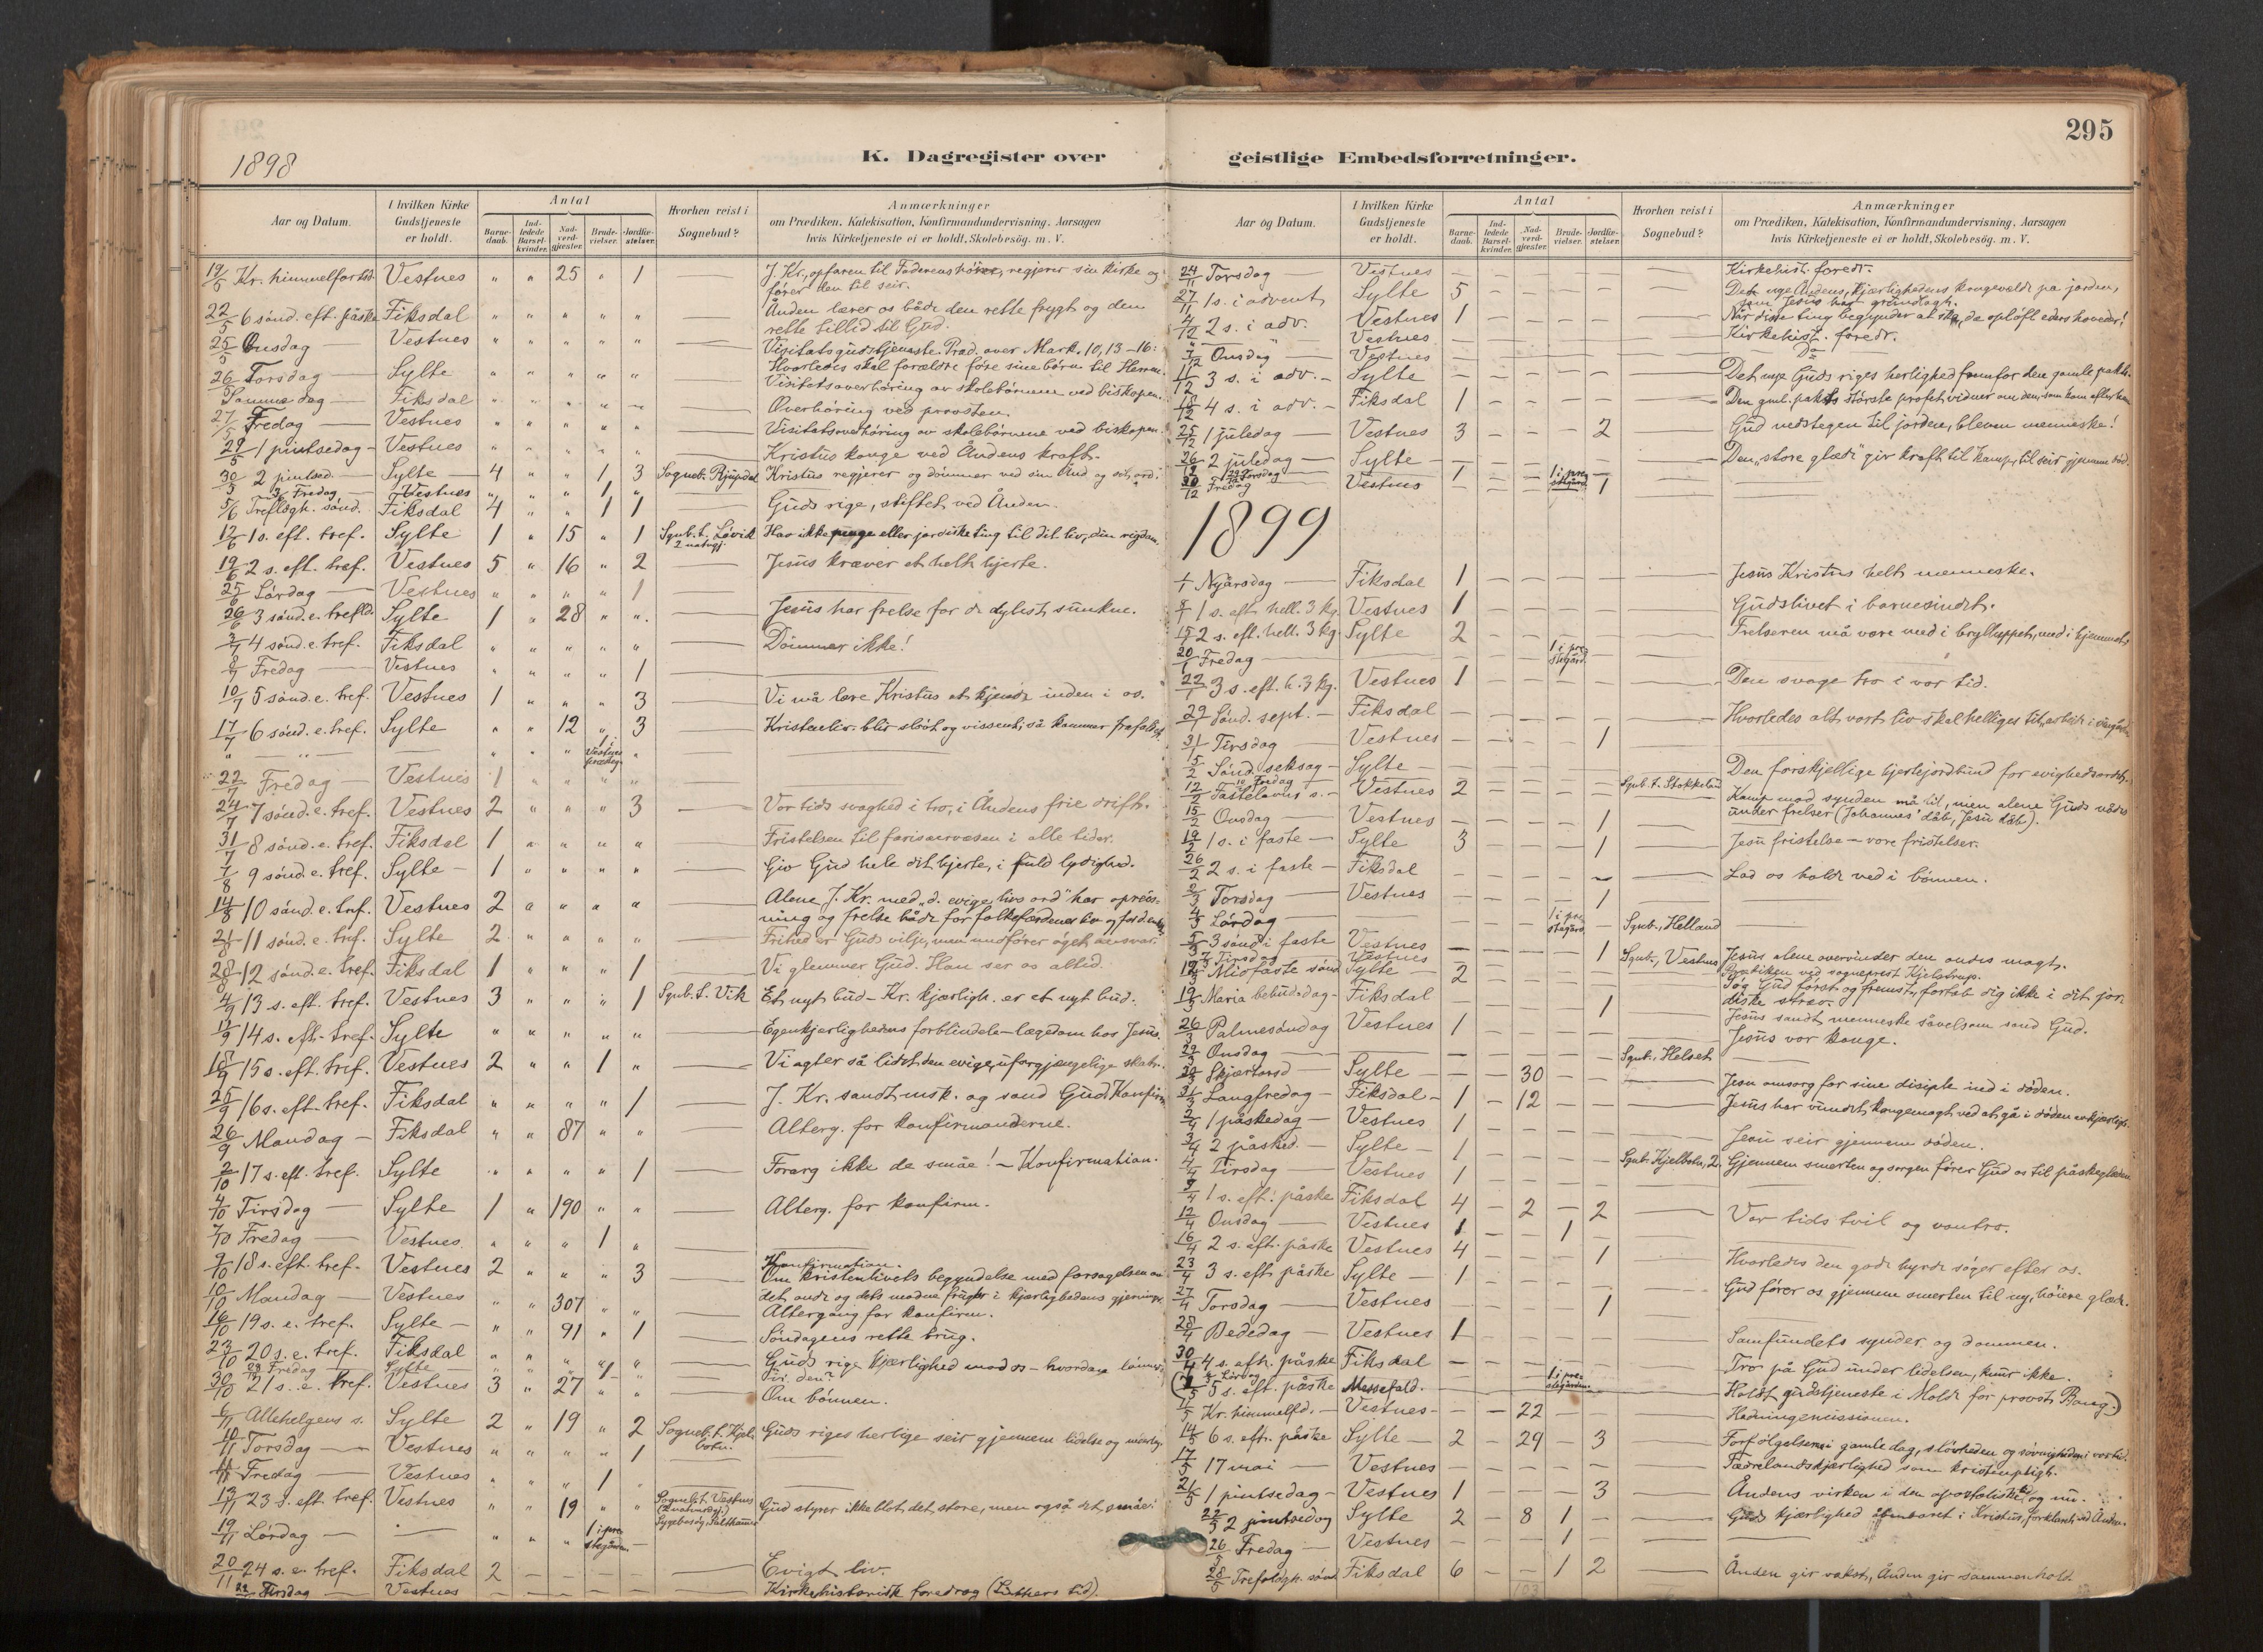 295
1898
K. Dagregister over geistlige Embedsforretninger.
Aar og Datum. I hvilken Kirke Gudstjeneste er holdt. Antal Barnedaab. Indledede Barselkvinder. Nadverdgjester. Brudevielser. Jordfæstelser. Hvorhen reist i Sognebud? Anmærkninger om Prædiken, Katekisation, Konfirmandundervisning, Aarsagen hvis Kirketjeneste ei er holdt, Skolebesög. m. V.
19/5 Kr. himmelfartsd. Vestnes " " 25 " 1 J. Kr., opfaren til Faderens höire, regjerer sin kirke og
fører den til seir.
22/5 6 sønd. eft. påske Fiksdal " " " " " Ånden lærer os både den rette frygt og den
rette tillid til Gud.
25/5 Onsdag Vestnes " " " " " Visitatsgudstjeneste. Præd. over Mark. 10,13-16:
Hvorledes skal forældre føre sine børn til Herren.
26/5 Torsdag Sylte " " " " " Visitatsoverhøring av skolebørnene ved biskopen.
Samme dag Fiksdal " " " " Overhøring ved provsten.
27/5 Fredag Vestnes " " " " " Visitatsoverhøring av skolebørnene ved biskopen.
29/5 1 pintsedag Vestnes " " " " Kristus konge ved Åndens kraft.
30/5 2 pintsed. Sylte 4 " " 1 3 Kristus regjerer og dømmer ved sin Ånd og sit ord.
3/6 Fredag Vestnes " " " 1 "
5/6 Trefldgh. sønd. Fiksdal 4 " " 1 1 Guds rige, stiftet ved Ånden.
12/6 1 s. eft. tref. Sylte 1 " 15 " 1 Sgnb. t. Løvik 2 natvgj. Hav ikke penge eller jordiske ting til dit liv, din rigdom.
19/6 2 s. eft. tref. Vestnes 5 " 16 " 2 Jesus kræver et helt hjerte.
25/6 Lørdag Vestnes " " " " 1
26/6 3 sønd. e. trefld. Sylte 1 " 28 " " Jesus har frelse for de dybest sunkne.
3/7 4 sønd. e. tref. Fiksdal " " " " " Dømmer ikke!
8/7 Fredag Vestnes " " " " 1
10/7 5 sønd. e. tref. Vestnes 1 " " " 3 Vi må lære Kristus at kjende inden i os.
17/7 6 sønd. e. tref. Sylte " " 12 " 3 Kristenliv blir sløvt og vissent, så kommer frafaldet.
" " " " " 1 i Vestnes presteg. "
22/7 Fredag Vestnes 1 " " " "
24/7 7 sønd. e. tref. Vestnes 2 " " " 3 Vor tids svaghed i tro, i Åndens frie drift.
31/7 8 sønd. e. tref. Fiksdal 1 " " " " Fristelsen til farisæervæsen i alle tider.
7/8 9 sønd. e. tref. Sylte 1 " " " " Giv Gud hele dit hjerte, i fuld lydighed.
14/8 10 sønd. e. tref. Vestnes 2 " " " " Alene J. Kr. med „d. evige livs ord" har opreis-
ning og frelse både for folkefærdenes liv og for d. enkelte
21/8 11 sønd. e. tref. Sylte 2 " " " " Frihed er Guds vilje, men medfører øget ansvar.
28/8 12 sønd. e. tref. Fiksdal 1 " " " 1 Vi glemmer Gud. Han ser os altid.
4/9 13 s. eft. tref. Vestnes 3 " " " 1 Sgnb. t. Vik Et nyt bud - Kr. kjærligh. er et nyt bud.
11/9 14 s. eft. tref. Sylte " " " " " Egenkjærlighedens forblindelse - lægedom hos Jesus.
18/9 15 s. eft. tref. Vestnes 2 " " 1 " Vi agter så lidet den evige, uforgjængelige skat.
25/9 16 s. eft. tref. Fiksdal " " " " 1 J. Kr. sandt msk. og sand Gud. Konfirm.
26/9 Mandag Fiksdal " " 87 " " Alterg. for konfirmanderne.
2/10 17 s. eft. tref. Sylte " " " " 1 Forarg ikke de småe! - Konfirmation.
4/10 Tirsdag Sylte 1 " 190 " " Alterg. for konfirm.
7/10 Fredag Vestnes. " " " 1 "
9/10 18 s. eft. tref. Vestnes 2 " " " 3 Konfirmation.
Om kristenlivets begyndelse med forsagelsen av
det onde og dets modne frugter i kjærlighedens gjerninger.
10/10 Mandag Vestnes " " 307 " " Altergang for konfirm.
16/10 19 s. e. tref. Sylte " " 91 " 1 Søndagens rette brug.
23/10 20 s. e. tref. Fiksdal " " " " " Guds rige kjærlighed mod os - hvordan lønner
vi den?
28/10 Fredag Sylte " " " 1 "
30/10 21 s. e. tref. Vestnes 3 " 27 " " Om bønnen.
6/11 Allehelgens s. Sylte 2 " 19 " 2 Guds riges herlige seir gjennem lidelse og
10/11 Torsdag Vestnes " " " " 1
11/11 Fredag Vestnes " " " 1
13/11 23 s. eft. tref. Vestnes " " 19 " " Sogneb. t. Vestnes Gud styrer ikke blot det store, men også det småe.
19/11 Lørdag " " " 1 i prestegården
20/11 24 s. e. tref. Fiksdal 2 Evigt liv.
22/11 Tirsdag Vestnes Kirkehistorisk foredrag (Luthers tid).
24/11 Torsdag Vestnes Kirkehist. foredr.
27/11 1 s. i advent Sylte 5 Det nye Åndens, kjærlighedens kongevælde på jorden,
som Jesus har grundlagt.
4/12 2 s. i adv. Vestnes 1 Når disse ting begynder at ske, da opløft eders hoveder!
" " Vestnes Kirkehist. foredr.
7/12 Onsdag Vestnes Do
11/12 3 s. i adv. Sylte Det nye Guds riges herlighed fremfor den gamle pakts.
18/12 4 s. i adv. Fiksdal 1 Den gml. pakts største profet vidner om den, som kom efter ham
25/12 1 juledag Vestnes 3 2 Gud nedstegen til jorden, bleven menneske!
26/12 2 juledag Sylte Den „store glæde" giv kraft til kamp, til seir gjennem død.
29/12 Torsdag 1 i prestegård
30/12 Fredag Vestnes 1 1
1899
1/1 Nyårsdag Fiksdal 1 Jesus Kristus helt menneske.
8/1 1 s. eft. hell. 3 kg. Vestnes 1 Gudslivet i barnesindet.
15/1 2 s. eft. hell. 3 kg. Sylte 2 Frelseren må være med i brylluppet, med i hjemmet.
20/1 Fredag 1 i prestegård
22/1 3 s. eft. h. 3 kg. Vestnes 1 Den svage tro i vor tid.
29/1 Sønd. sept. Fiksdal Hvorledes alt vort liv skal helliges til „arbeide i vingården"
31/1 Tirsdag Vestnes 1
5/2 Sønd. seksag Sylte Den forskjellige hjertejordbund for evighedsordet.
10 Fredag Sgnb. t. Stokkeland
12/2 Fastelavns s. Vestnes 2 Kamp mod synden må til, men alene Guds nådes
under frelser (Johannes' dåb, Jesu dåb).
15/2 Onsdag Vestnes 1
19/2 1 s. i faste Sylte 3 1 Jesu fristelse - vore fristelser.
26/2 2 s. i faste Fiksdal Lad os holde ved i bønnen.
2/3 Torsdag Vestnes 1
4/3 Lørdag 1 i prestegård Sgnb., Helland
5/3 3 sønd i faste Vestnes 1 Sgnb., Vestnes Jesus alene overvinder den ondes magt.
7/3 Tirsdag Vestnes
12/3 Midfaste sønd Sylte 2 Prædiken ved sogneprest Kjelstrup.
19/3 Maria bebudsdag Fiksdal 1 Søg Gud først og fremst, fortab dig ikke i dit jor-
diske stræv.
Jesus sandt menneske såvelsom sand Gud.
26/3 Palmesøndag Vestnes 1 Jesus vor konge.
29/3 Onsdag Sgnb., Helset
30/3 Skjærtorsd Sylte 30 Jesu omsorg for sine disciple ind i døden.
31/3 Langfredag Fiksdal 1 12 Jesus har vundet kongemagt ved at gå i døden av kjærligh.
2/4 1 påskedag Vestnes 1 Jesu seir gjennem døden.
3/4 2 påsked. Sylte 1 Gjennem smerten og sorgen fører Gud os til påskeglæden
4/4 Tirsdag Vestnes 1
9/4 1 s. eft. påske Fiksdal 4 2 2 Vor tids tvil og vantro.
12/4 Onsdag Vestnes 1 1
16/4 2 s. eft. påske Vestnes 4 1 Hvorledes den gode hyrde søger efter os.
23/4 3 s. eft. påske Sylte 1 Gud fører os gjennem smerten til ny, høiere glæde.
27/4 Torsdag Vestnes 1
28/4 Bededag Vestnes 1 Samfundets synder og dommen.
30/4 4 s. eft. påske Fiksdal Tro på Gud under lidelsen, knur ikke.
Lørdag 1 i prestegården
(7/5 5 s. eft. påske Messefald. Holdt gudstjeneste i Molde for provst Bang.)
11/5 Kr. himmelfd. Vestnes 22 Hedningemissionen.
14/5 6 s. eft. påske Sylte 2 29 3 Forfølgelserne i gamle dag, sløvheden og søvnigheden i vor tid.
17/5 17 mai Vestnes Fædrelandskjærlighed som kristenpligt.
21/5 1 pintsedag Vestnes 1 3 Åndens virken i den apostoliske tid og nu.
22/5 2 pintsedag Sylte 2 8 1 Guds kjærlighed åbenbaret i Kristus, forklaret ved Ånden.
26/5 Fredag Vestnes 1
28/5 Trefoldgh. sønd Fiksdal 6 1 2 Ånden gir vækst, Ånden gir sammenhold.
103